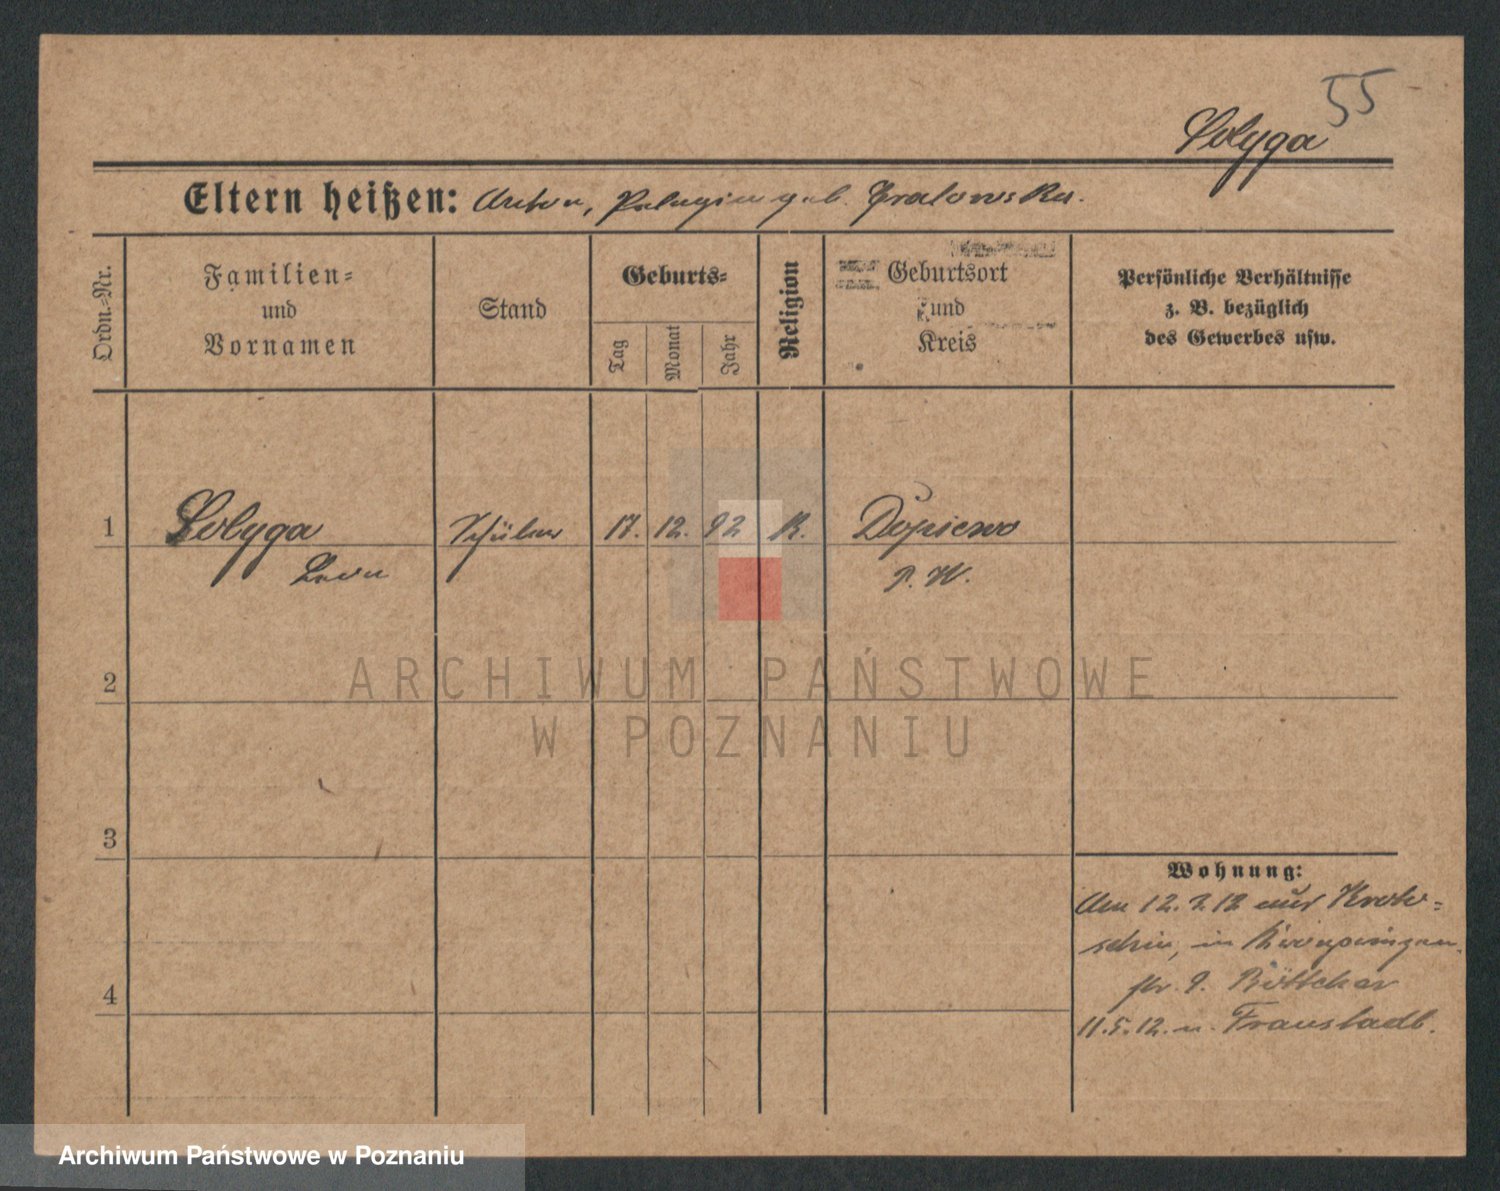 55
Solyga
Eltern heißen: Anton, Pelagia geb. Gralowska.
Ordn.=Nr.
Familien=
und
Vornamen
Stand
Geburts=
Tag
Monat
Jahr
Religion
Geburtsort
und
Kreis
Persönliche Verhältnisse
z. B. bezüglich
des Gewerbes usw.
1 Solyga Schüler 17. 12. 92 K. Dopiewo
Leon P. W.
2
3
4
Wohnung:
Am 12. 2. 12 aus Kroto=
schin, in
str. 9. Böttcher
11.5.12. n. Fraustadt.
ARCHIWUM PAŃSTWOWE
W POZNANIU
Archiwum Państwowe w Poznaniu